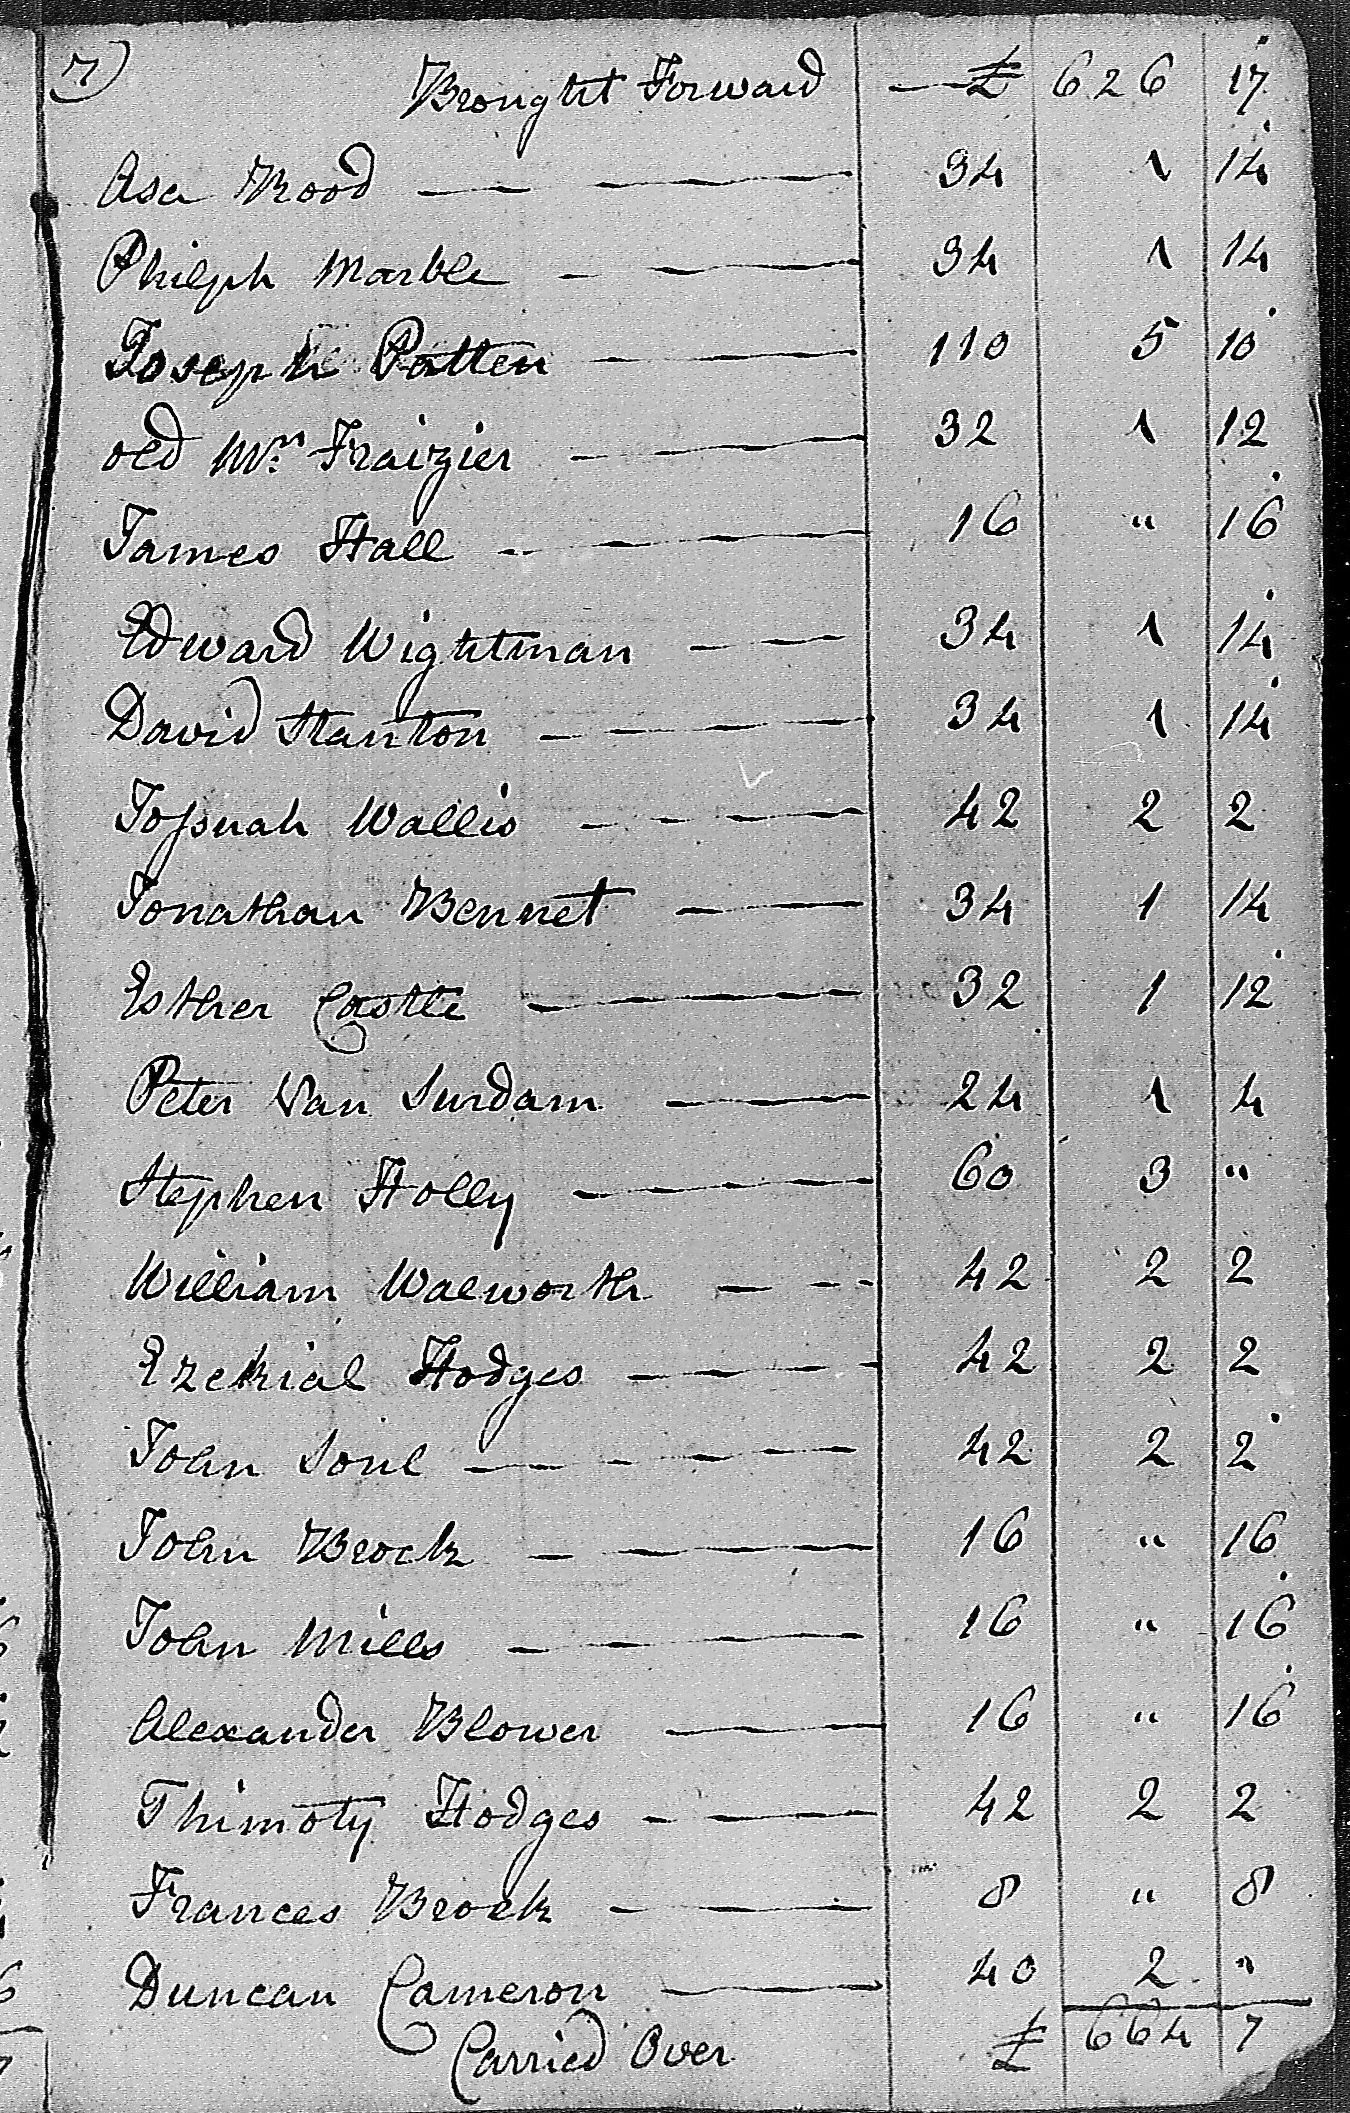 7)
Brought Forward — £ 626 17
Asa Wood — — — 34 1 14
Philiph Marble — — — 34 1 14
Joseph Patten — — — 110 5 10
old Mrs. Fraizier — — — 32 1 12
James Hall — — — 16 " 16
Edward Wightman — — 34 1 14
David Stanton — — — 34 1 14
Joshuah Wallis — — — 42 2 2
Jonathan Bennet — — 34 1 14
Esther Castle — — — 32 1 12
Peter Van Surdam — — 24 1 4
Stephen Holly — — — 60 3 "
William Walworth — — 42 2 2
Ezekial Hodges — — — 42 2 2
John Soul — — — 42 2 2
John Brock — — — 16 " 16
John Mills — — — 16 " 16
Alexander Blower — — 16 " 16
Thimoty Hodges — — — 42 2 2
Frances Brock — — — 8 " 8
Duncan Cameron — — 40 2 "
Carried Over £ 664 7